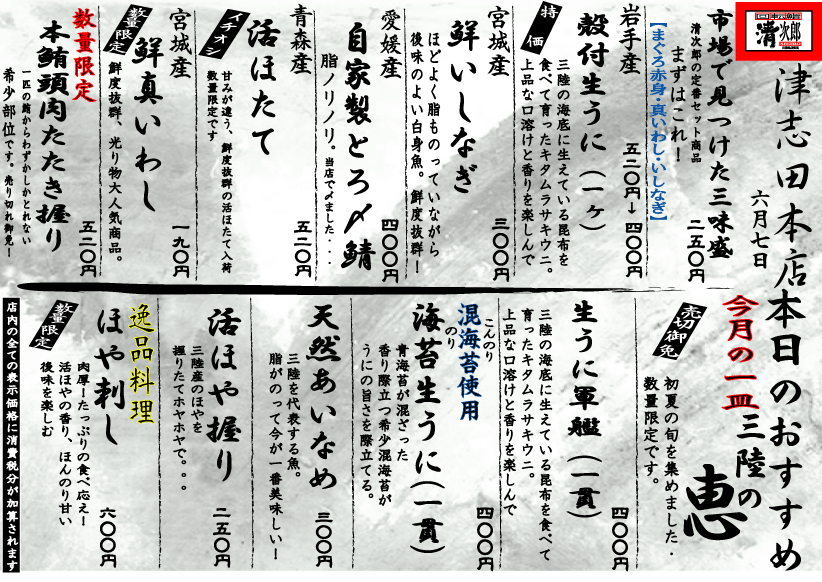 清次郎
津志田本店
六月七日
本日のおすすめ
市場で見つけた三昧盛
清次郎の定番セット商品
まずはこれ！
【まぐろ赤身・真いわし・いしなぎ】
二五〇円
岩手産
特価
殻付生うに（一ヶ）
三陸の海底に生えている昆布を
食べて育ったキタムラサキウニ。
上品な口溶けと香りを楽しんで
五二〇円→四〇〇円
宮城産
鮮いしなぎ
ほどよく脂ものっていながら
後味のよい白身魚。鮮度抜群！
三〇〇円
愛媛産
自家製とろ〆鯖
脂ノリノリ。当店で〆ました・・・
四〇〇円
青森産
イチオシ
活ほたて
甘みが違う、鮮度抜群の活ほたて入荷
数量限定です
五二〇円
宮城産
数量限定
鮮真いわし
鮮度抜群、光り物大人気商品。
一九〇円
数量限定
本鮪頭肉たたき握り
一匹の鮪からわずかしかとれない
希少部位です。売り切れ御免！
五二〇円
今月の一皿
三陸の
恵
売切御免
初夏の旬を集めました・
数量限定です。
生うに軍艦（一貫）
三陸の海底に生えている昆布を食べて
育ったキタムラサキウニ。
上品な口溶けと香りを楽しんで
四〇〇円
混海苔使用
こんのり
海苔生うに（一貫）
のり
青海苔が混ざった
香り際立つ希少混海苔が
うにの旨さを際立てる。
四〇〇円
天然あいなめ
三陸を代表する魚。
脂がのって今が一番美味しい！
三〇〇円
活ほや握り
三陸産のほやを
握りたてホヤホヤで。。。
二五〇円
逸品料理
数量限定
ほや刺し
肉厚！たっぷりの食べ応え！
活ほやの香り、ほんのり甘い
後味を楽しむ
六〇〇円
店内の全ての表示価格に消費税分が加算されます